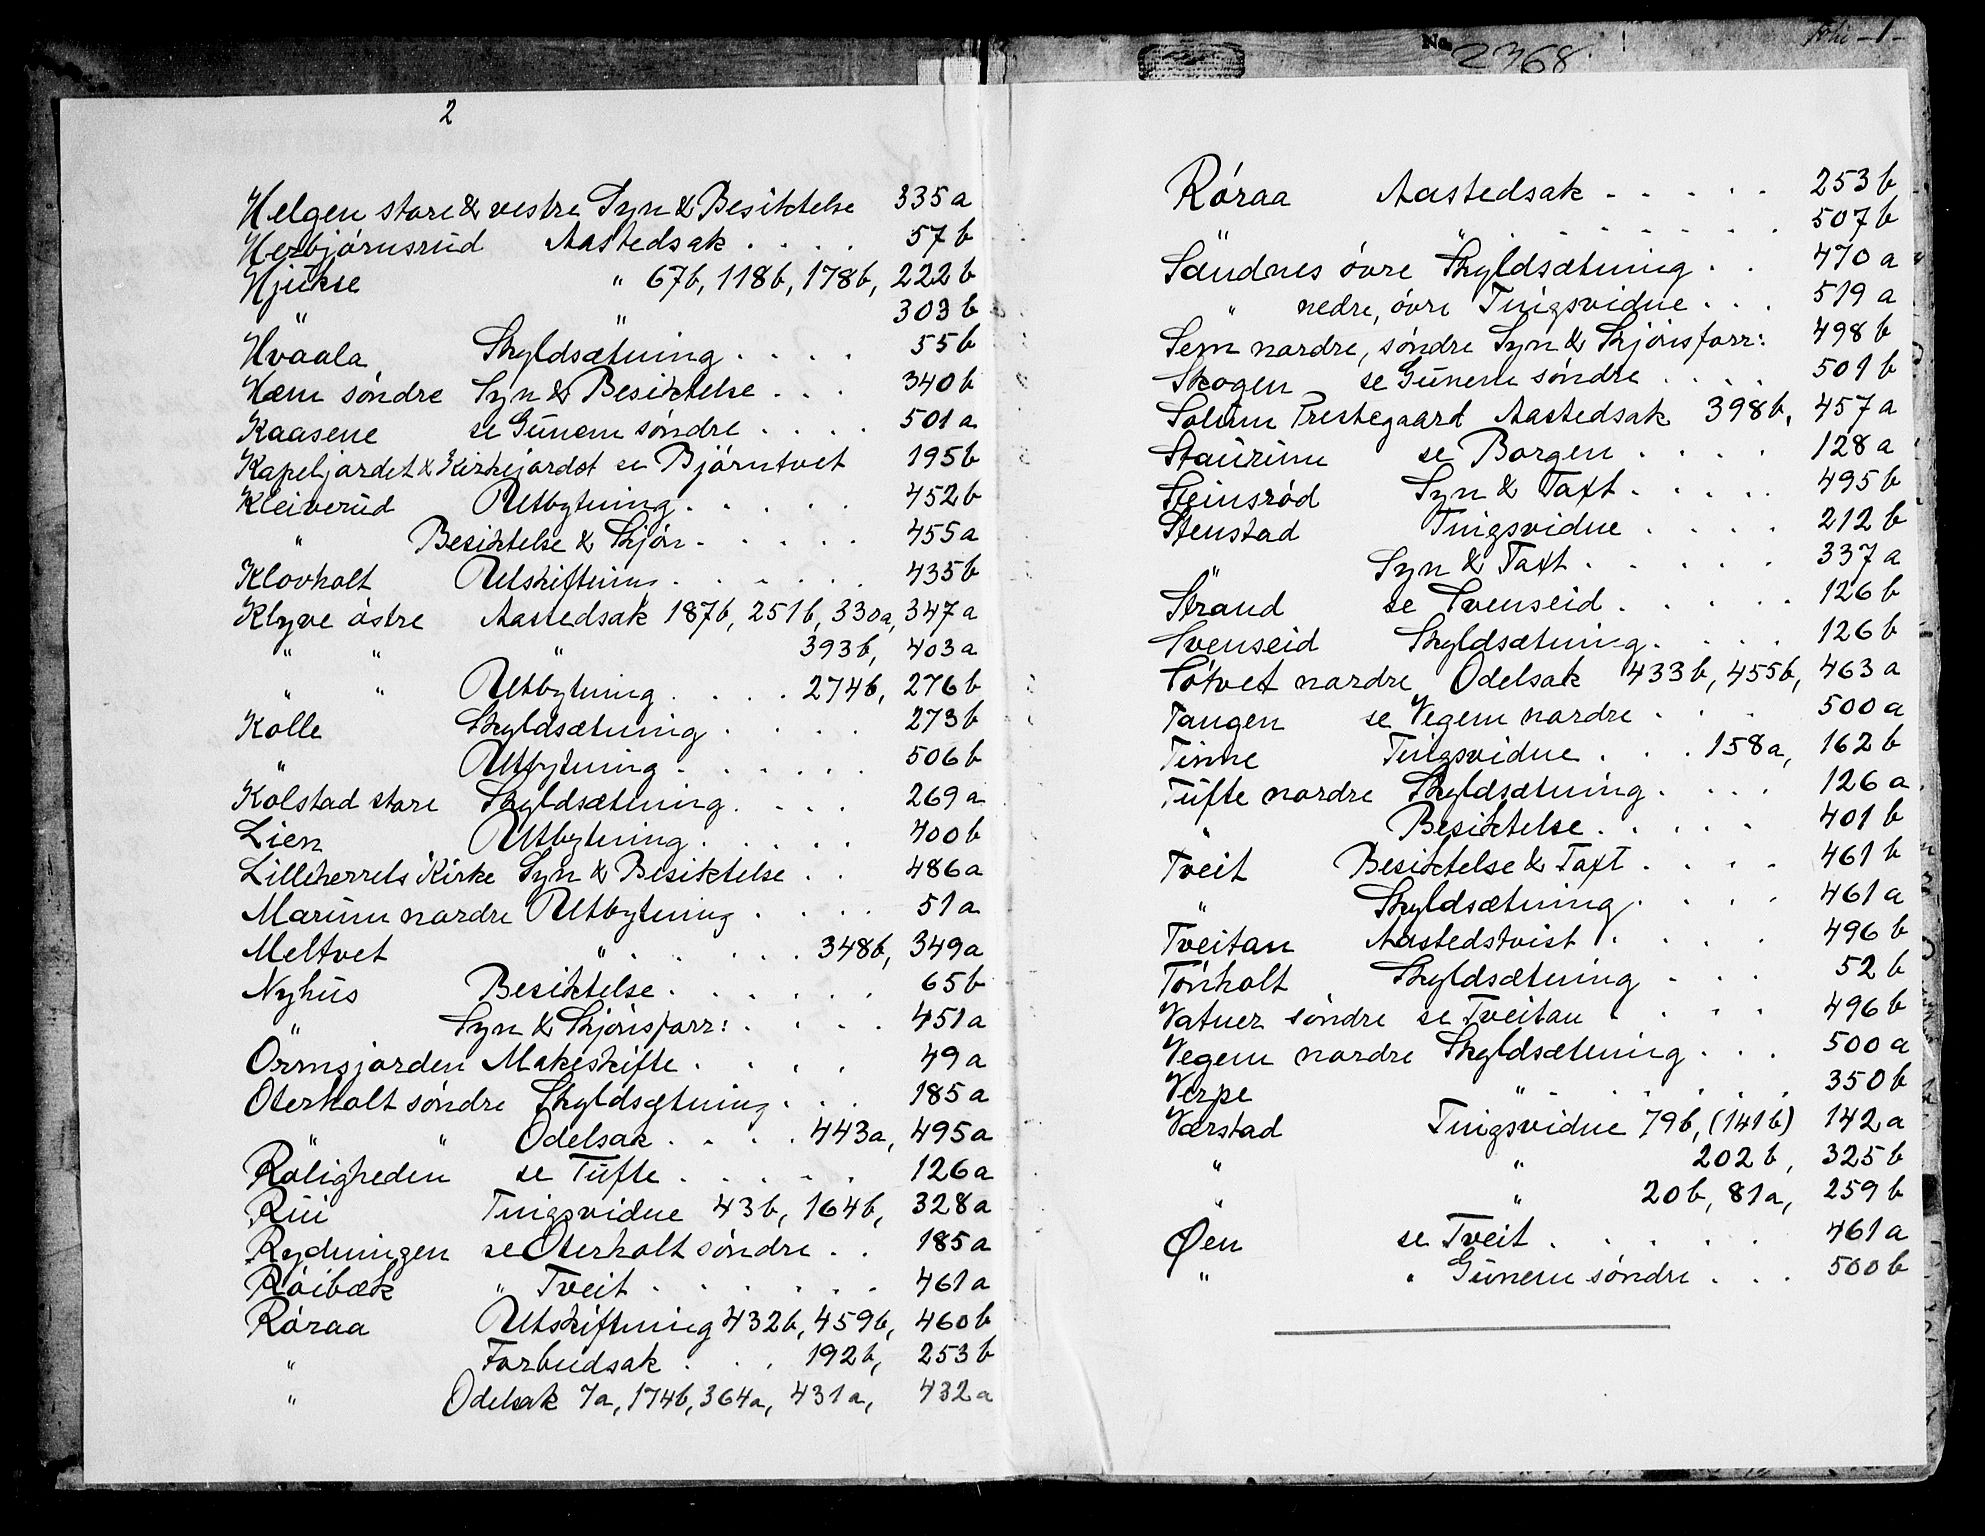 2
Helgen store & vestre Syn & Besiktelse 335a
Herbjörnsrud Aastedsak . . . . 57b
Hjukse " 67b, 118b, 178b, 222b
" " 303b
Hvaala Skyldsætning . . . . 55b
Hæm söndre Syn & Besiktelse . . . 340b
Kaasene se Gunem söndre . . . . 501a
Kapeljordet & Kirkejordet se Björntvet 195b
Kleiverud Utbytning . . . . . 452b
" Besiktelse & Skjön . . . . . 455a
Klovholt Utskiftning . . . . . . 435b
Klyve östre Aastedsak 187b, 251b, 330a, 347a
" " " 393b, 403a
" " Utbytning . . . . 274b, 276b
Kolle Skyldsætning . . . . 273b
" Utbytning . . . . . . 506b
Kolstad store Skyldsætning . . . . 269a
Lien Utbytning . . . . . 400b
Lilleherrels Kirke Syn & Besiktelse . . 486a
Marum nordre Utbytning . . . . 51a
Meltvet " . . . . . 348b, 349a
Nyhus Besiktelse . . . . . . 65b
" Syn & Skjönsforr: . . . . 451a
Ormsjorden Makeskifte . . . . 49a
Oterholt söndre Skyldsætning . . . 185a
" " Odelsak . . . . 443a, 495a
Roligheden se Tufte . . . . . 126a
Rui Tingsvidne 43b, 164b, 328a
Rydningen se Oterholt söndre . . 185a
Röibæk " Tveit . . . . . . 461a
Röraa Utskiftning 432b, 459b, 460b
" Forbudsak . . . 192b, 253b
" Odelsak 7a, 174b, 364a, 431a, 432a
No 2368
Röraa Aastedsak . . . . . 253b
" . . . . . . . 507b
Sandnes övre Skyldsætning . . 470a
" nedre, övre Tingsvidne . . . 519a
Sem nordre, söndre Syn & Skjönsforr: 498b
Skogen se Gunem söndre . . . . 501b
Solum Prestegaard Aastedsak 398b, 457a
Staurum se Borgen . . . . 128a
Steinsröd Syn & Taxt . . . . . 495b
Stenstad Tingsvidne . . . . 212b
" Syn & Taxt . . . . . 337a
Strand se Svenseid . . . . . 126b
Svenseid Skyldsætning . . . . 126b
Sötvet nordre Odelsak 433b, 455b, 463a
Tangen se Vegem nordre . . . 500a
Tinne Tingsvidne . . . 158a, 162b
Tufte nordre Skyldsætning . . . . 126a
" Besiktelse . . . . . 401b
Tveit Besiktelse & Taxt . . . . 461b
" Skyldsætning . . . . 461a
Tveitan Aastedstvist . . . . 496b
Tönholt Skyldsætning . . . 52b
Vatner söndre se Tveitan . . . . 496b
Vegem nordre Skyldsætning . . . 500a
Verpe " . . . . . . 350b
Værstad Tingsvidne 79b, (141b) 142a
" " 202b, 325b
" " 20b, 81a, 259b
Øen se Tveit . . . . . 461a
" " Gunem söndre . . . 500b